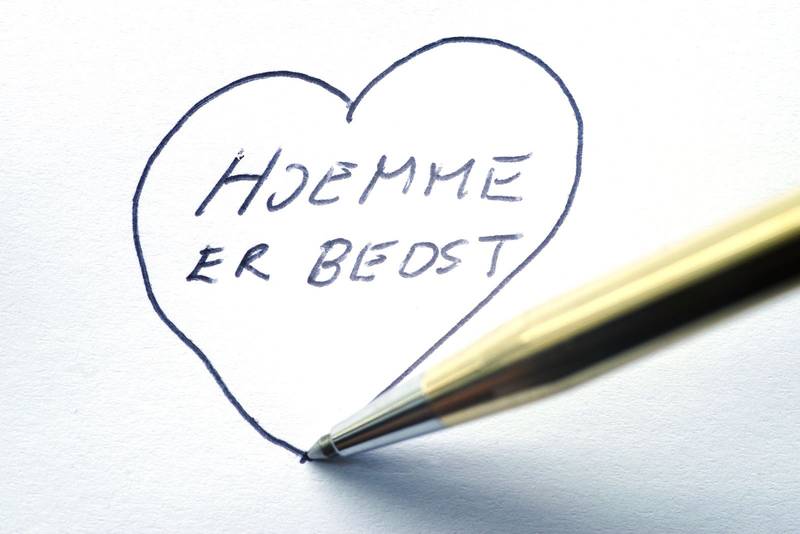 HJEMME
ER BEDST